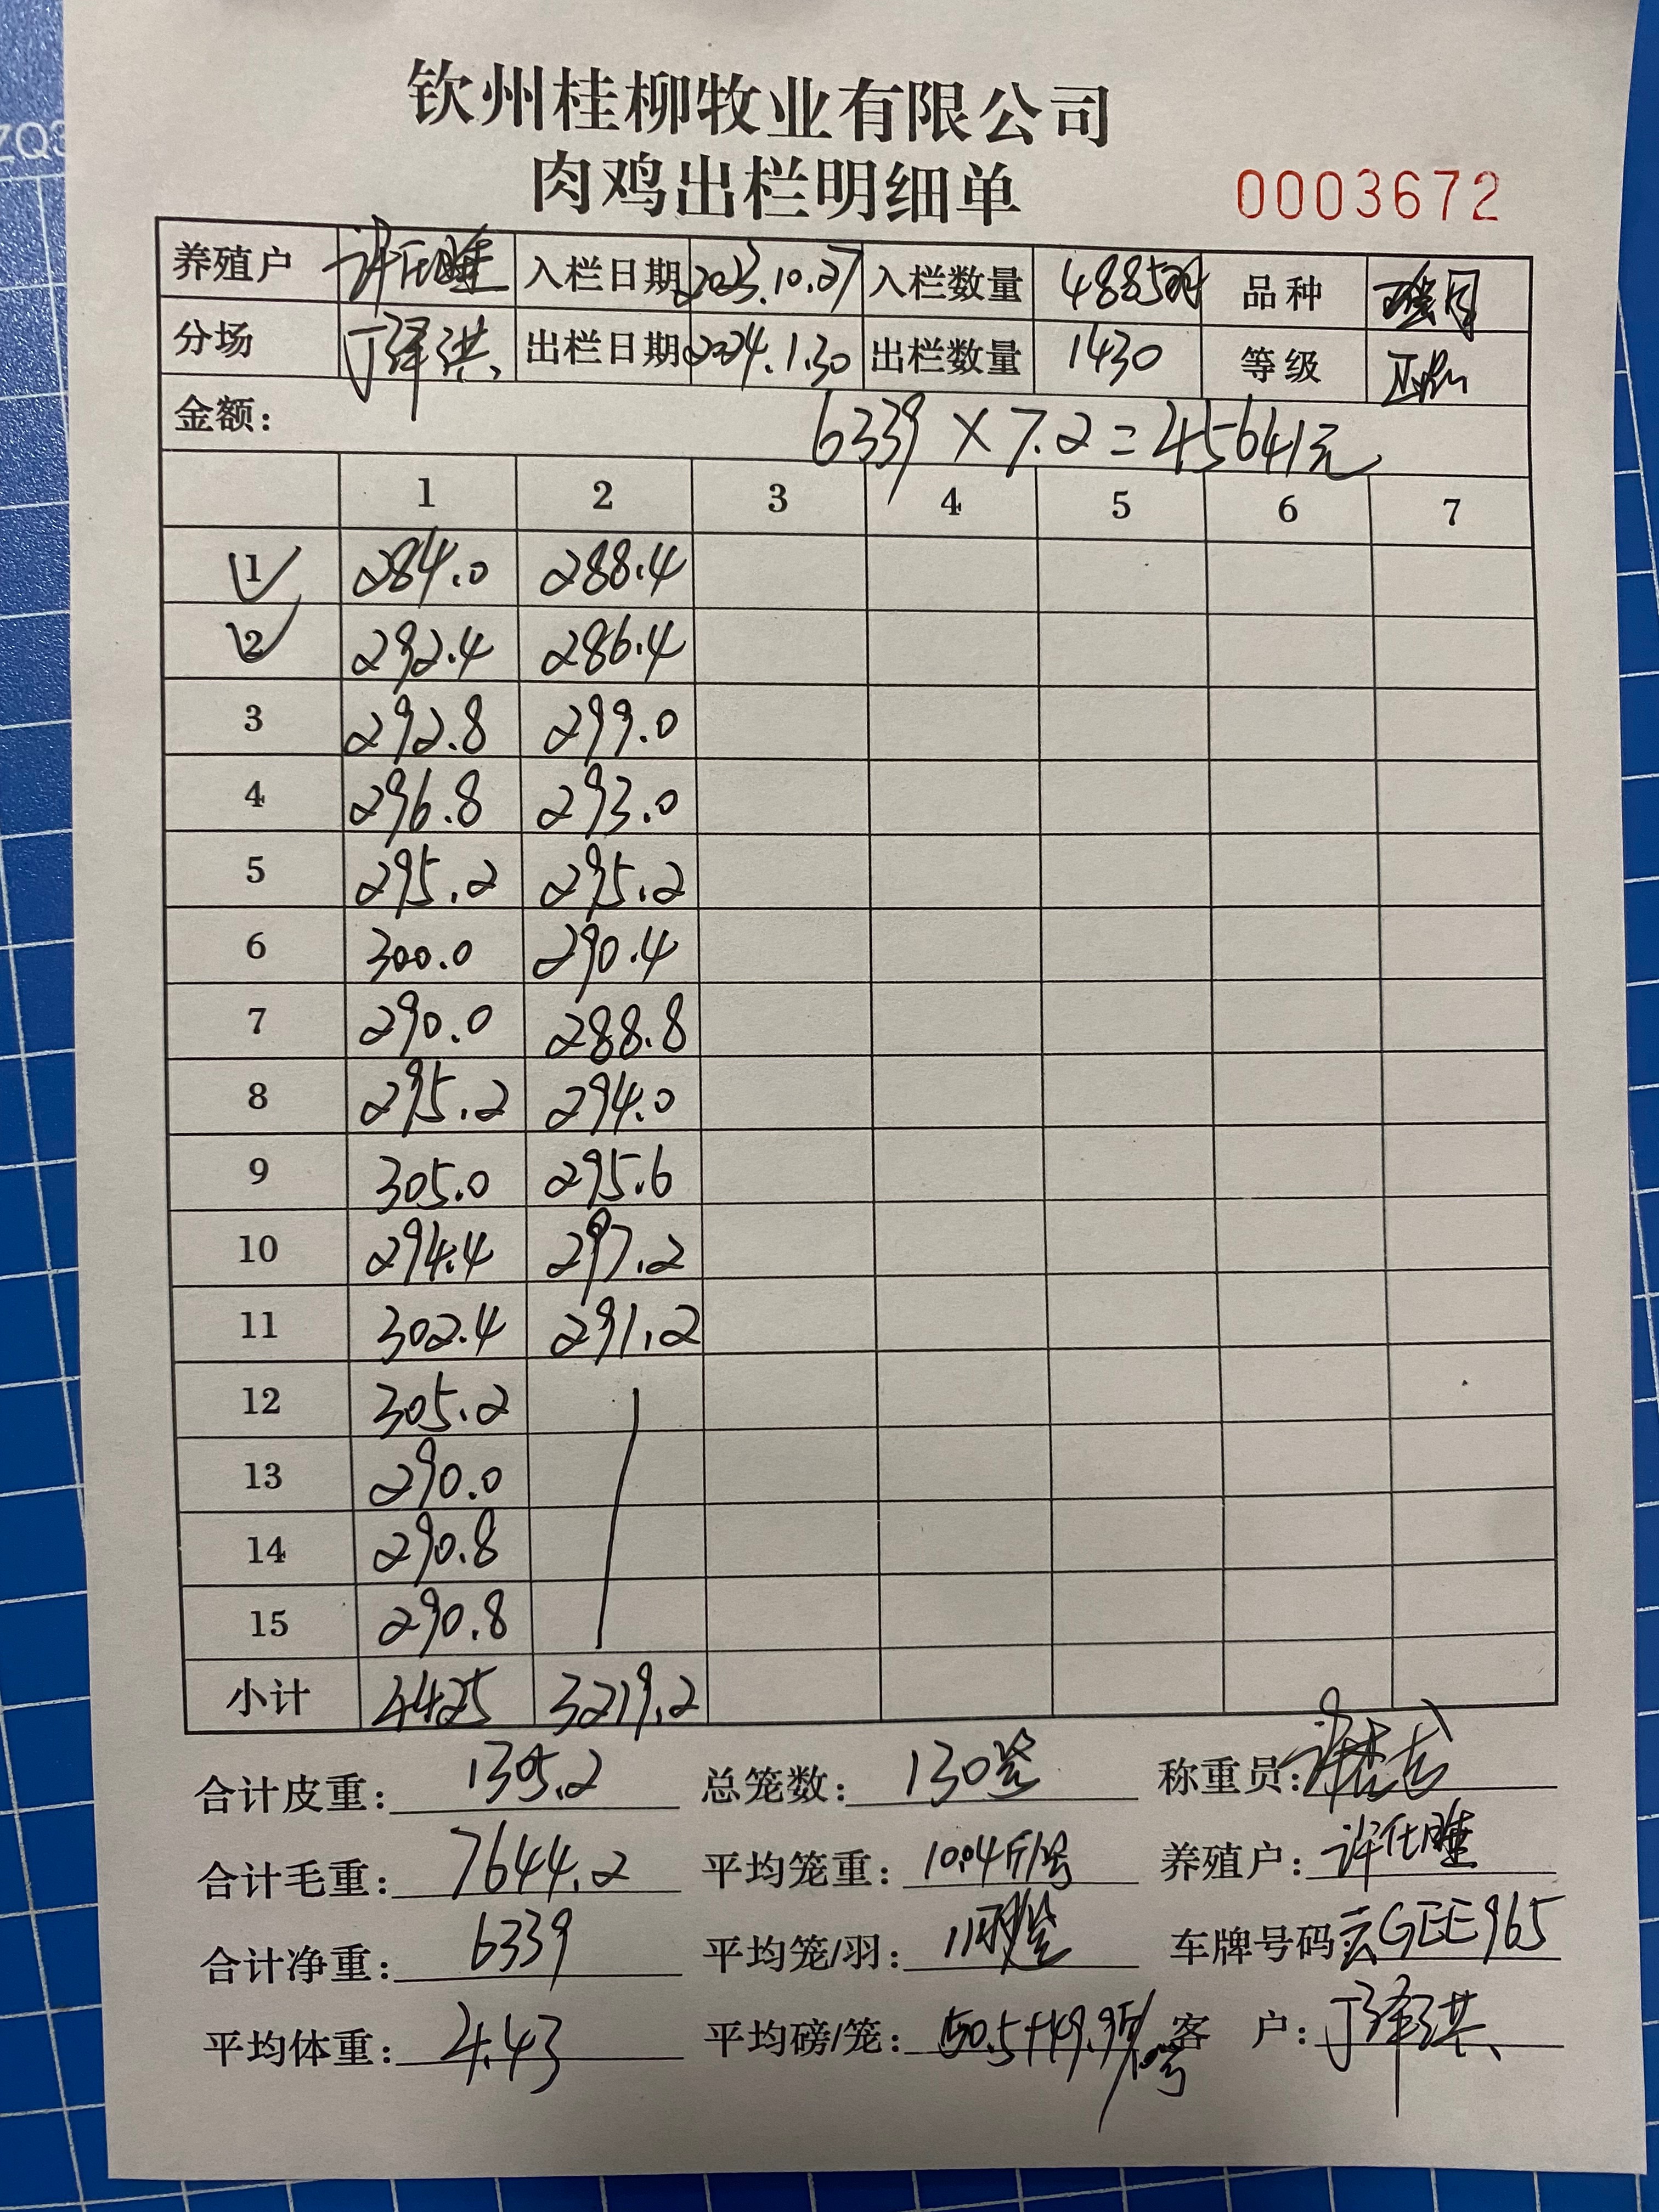 钦州桂柳牧业有限公司
肉鸡出栏明细单 0003672
养殖户 许仕 入栏日期 2023.10.27 入栏数量 4885羽 品种
分场 丁泽洪 出栏日期 2024.1.30 出栏数量 1430 等级 正品
金额: 6339×7.2=45641元
1 2 3 4 5 6 7
1 284.0 288.4
2 292.4 286.4
3 292.8 299.0
4 296.8 293.0
5 295.2 295.2
6 300.0 290.4
7 290.0 288.8
8 295.2 294.0
9 305.0 295.6
10 294.4 297.2
11 302.4 291.2
12 305.2
13 290.0
14 290.8
15 290.8
小计 4425 3219.2
合计皮重: 1305.2 总笼数: 130笼 称重员: 许
合计毛重: 7644.2 平均笼重: 10.04斤/号 养殖户: 许仕
合计净重: 6339 平均笼/羽: 11羽/笼 车牌号码: 云GEE965
平均体重: 4.43 平均磅/笼: 客户: 丁泽洪